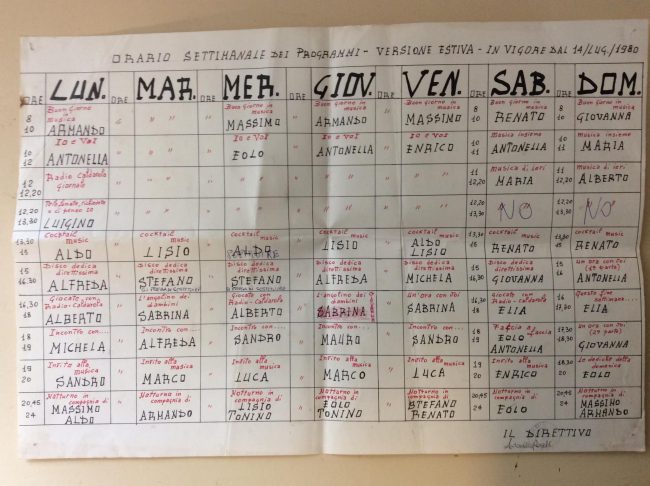 ORARIO SETTIMANALE DEI PROGRAMMI - VERSIONE ESTIVA - IN VIGORE DAL 14/LUG./1980
ORE LUN. ORE MAR. ORE MER. ORE GIOV. ORE VEN. ORE SAB. ORE DOM.
8 10 Buon Giorno in musica ARMANDO " " " " Buon Giorno in musica MASSIMO " Buon Giorno in musica ARMANDO " Buon Giorno in musica MASSIMO 8 10 Buon Giorno in musica RENATO 8 10 Buon Giorno in musica GIOVANNA
10 12 Io e Voi ANTONELLA " " " " Io e Voi EOLO " Io e Voi ANTONELLA " Io e Voi ENRICO 10 11 Musica insieme ANTONELLA 10 11 Musica insieme MARIA
12 12,20 Radio Caldarola giornale " " " " " " " " " " " " 11 12,20 Musica di ieri MARIA 11 12,20 Musica di ieri ALBERTO
12,20 13,30 ci penso io LUIGINO " " " " " " " " " " " " 12,20 13,30 NO 12,20 13,30 NO
13,30 15 Cocktail music ALDO " Cocktail music LISIO " Cocktail music ALDO " Cocktail music LISIO " Cocktail music ALDO LISIO 13,30 15 Cocktail music RENATO 13,30 15 Cocktail music RENATO
15 16,30 Disco dedica direttissima ALFREDA " Disco dedica direttissima STEFANO " Disco dedica direttissima STEFANO " Disco dedica direttissima ALFREDA " Disco dedica direttissima MICHELA 15 16,30 Disco dedica direttissima GIOVANNA 15 16 Un ora con Toi (1ª parte) ANTONELLA
16,30 18 Giocate con Radio-Caldarola ALBERTO " L'angolino dei bambini SABRINA " Giocate con Radio-Caldarola ALBERTO " L'angolino dei bambini SABRINA " Un'ora con Toi SABRINA 16,30 18 Giocate con Radio-Caldarola ELIA 16 17,30 Questo fine settimana... ELIA
18 19 Incontro con... MICHELA " Incontro con... ALFREDA " Incontro con.... SANDRO " Incontro con.... MAURO " Incontro con... SANDRO 18 19 Faccia a Faccia EOLO ANTONELLA 17,30 18,30 Un ora con Toi (2ª parte) GIOVANNA
19 20 Invito alla musica SANDRO " Invito alla musica MARCO " Invito alla musica LUCA " Invito alla musica MARCO " Invito alla musica LUCA 19 20 Invito alla musica ENRICO 18,30 20 le dediche della domenica EOLO
20,45 24 Notturno in compagnia di MASSIMO ALDO " Notturno in compagnia di ARMANDO " Notturno in compagnia di LISIO TONINO " Notturno in compagnia di EOLO TONINO " Notturno in compagnia di STEFANO RENATO 20,45 24 Notturno in compagnia di EOLO 20,45 24 Notturno in compagnia di MASSIMO ARMANDO
IL DIRETTIVO